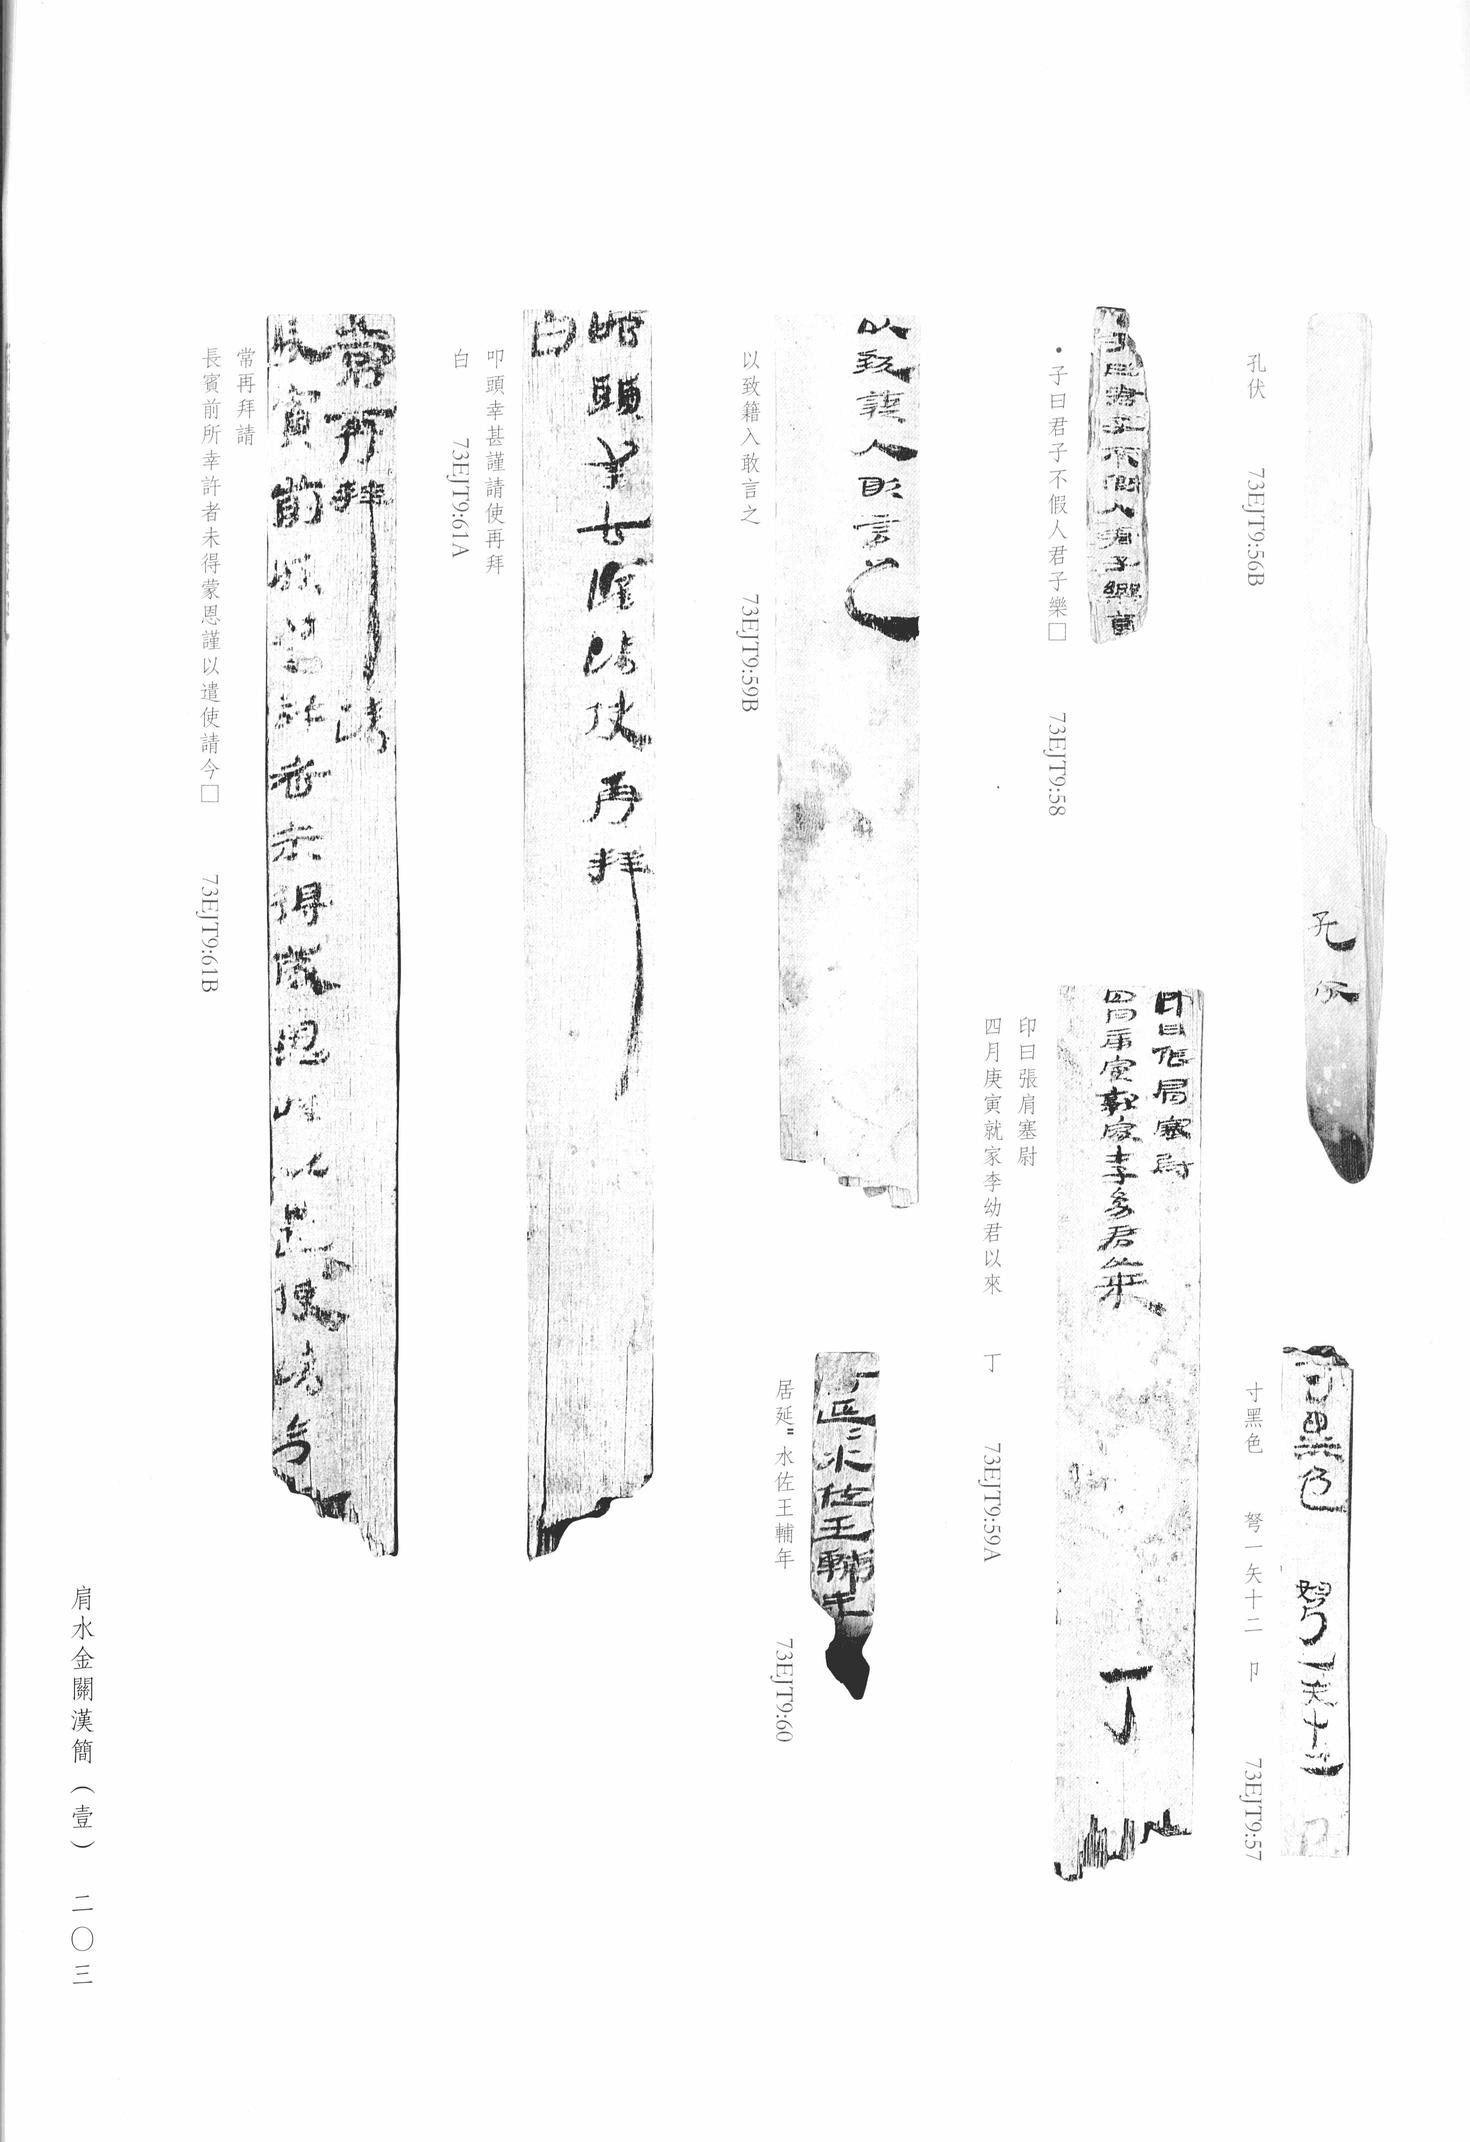 孔伏 73EJT9:56B
寸黑色 弩一矢十二 卩 73EJT9:57
•子曰君子不假人君子樂□ 73EJT9:58
印曰張肩塞尉
四月庚寅就家李幼君以來 丁 73EJT9:59A
以致籍入敢言之 73EJT9:59B
居延〓水佐王輔年 73EJT9:60
叩頭幸甚謹請使再拜
白 73EJT9:61A
常再拜請
長賓前所幸許者未得蒙恩謹以遣使請今□ 73EJT9:61B
肩水金關漢簡（壹） 二〇三